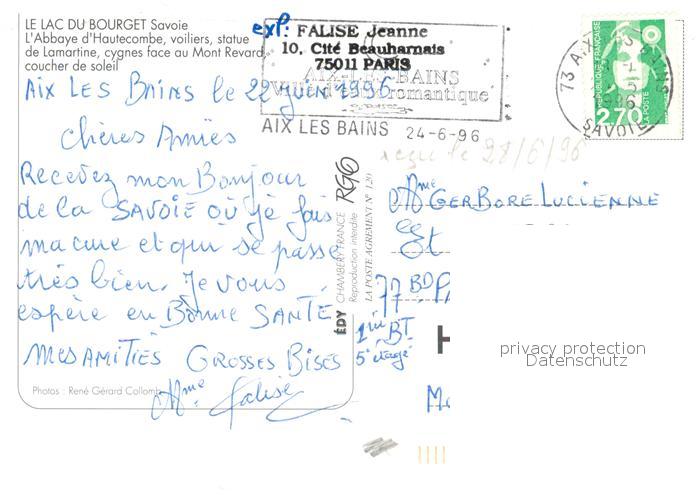 LE LAC DU BOURGET Savoie
L'Abbaye d'Hautecombe, voiliers, statue
de Lamartine, cygnes face au Mont Revard,
coucher de soleil
exp: FALISE Jeanne
10, Cité Beauharnais
75011 PARIS
AIX-LES-BAINS
romantique
AIX LES BAINS 24-6-96
73 AIX
BAINS
1996
SAVOIE
REPUBLIQUE FRANCAISE
2,70
LA POSTE
reçu le 28/6/96
Aix LES BAINS le 22 juin 1996
Chères Amies
Recevez mon Bonjour
de la SAVOIE où je fais
ma cure et qui se passe
très bien. Je vous
espère en Bonne SANTÉ.
MES AMITIÉS GROSSES BISES
Mme Falise
Photos : René Gérard Collomb
EDY CHAMBERY FRANCE
Reproduction interdite
LA POSTE AGREMENT N° 120
RGO
Mme GERBORE LUCIENNE
77 BD
BT
5e étage
privacy protection
Datenschutz